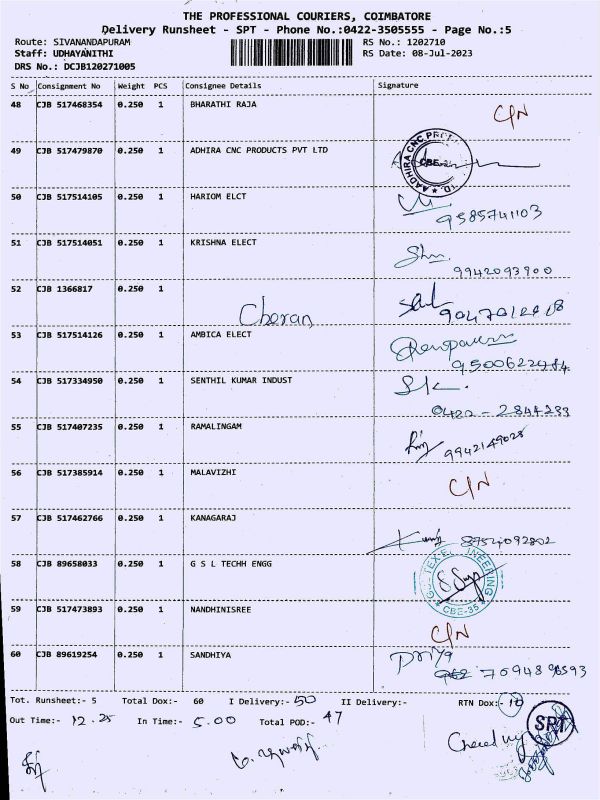 THE PROFESSIONAL COURIERS, COIMBATORE
Delivery Runsheet - SPT - Phone No.:0422-3505555 - Page No.:5
Route: SIVANANDAPURAM RS No.: 1202710
Staff: UDHAYANITHI RS Date: 08-Jul-2023
DRS No.: DCJB120271005
S No Consignment No Weight PCS Consignee Details Signature
48 CJB 517468354 0.250 1 BHARATHI RAJA C/N
49 CJB 517479870 0.250 1 ADHIRA CNC PRODUCTS PVT LTD
50 CJB 517514105 0.250 1 HARIOM ELCT
9585741103
51 CJB 517514051 0.250 1 KRISHNA ELECT
9942093900
52 CJB 1366817 0.250 1
Cheran
53 CJB 517514126 0.250 1 AMBICA ELECT
54 CJB 517334950 0.250 1 SENTHIL KUMAR INDUST S.K.
55 CJB 517407235 0.250 1 RAMALINGAM
9942149028
56 CJB 517385914 0.250 1 MALAVIZHI C/N
57 CJB 517462766 0.250 1 KANAGARAJ
58 CJB 89658033 0.250 1 G S L TECHH ENGG
CBE-35
59 CJB 517473893 0.250 1 NANDHINISREE C/N
60 CJB 89619254 0.250 1 SANDHIYA Priya
Tot. Runsheet:- 5 Total Dox:- 60 I Delivery:- 50 II Delivery:- RTN Dox:- 10
Out Time:- 12.25 In Time:- 5.00 Total POD:- 47 SPT